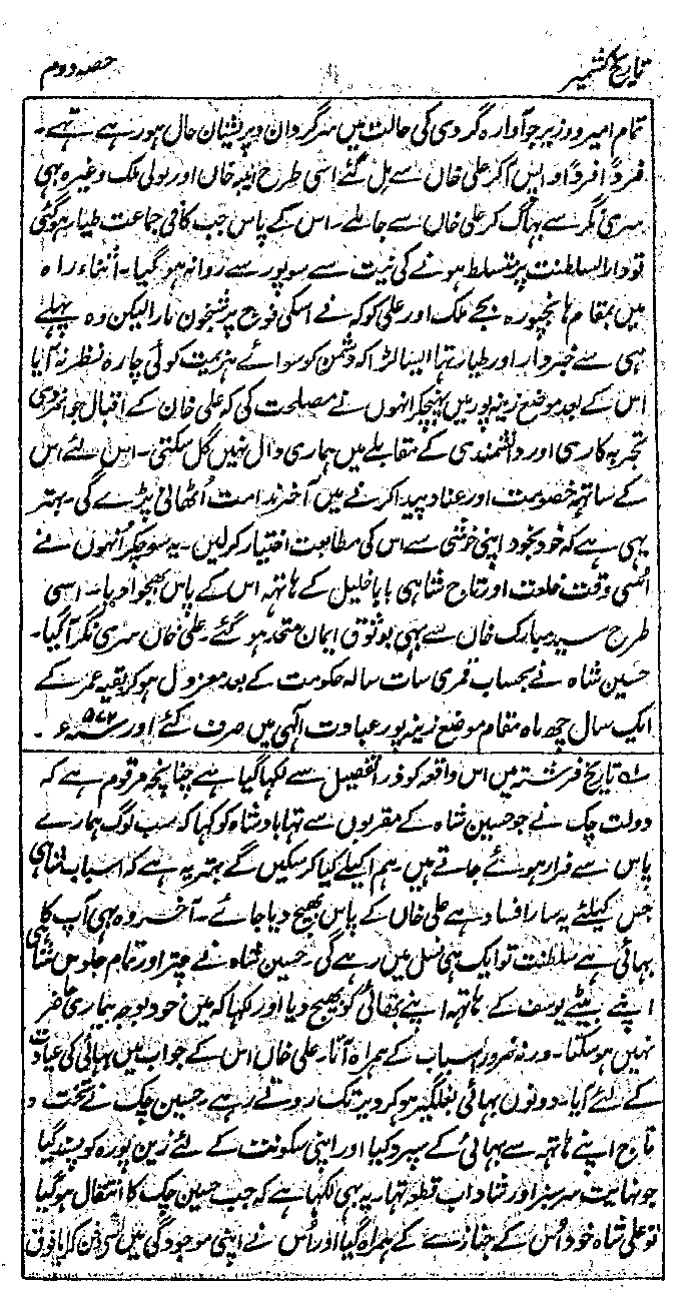 تاریخ کشمیر
حصہ دوم
تمام امیر و وزیر جو آوارہ گردی کی حالت میں سرگردان و پریشان حال ہو رہے تہے۔
فرداً فرداً واپس آ کر علی خاں سے مل گئے اسی طرح ایبہ خاں اور لولی ملک وغیرہ بہی
سری نگر سے بہاگ کر علی خاں سے جا ملے۔ اس کے پاس جب کافی جماعت طیار ہوگئی
تو دارالسلطنت پر تسلط ہونے کی نیت سے سوپور سے روانہ ہو گیا۔ اثناء راہ
میں بمقام ہانجیورہ بجے ملک اور علی کوکہ نے اسکی فوج پر شبخون مارا لیکن وہ پہلے
ہی سے خبردار اور طیار تہا ایسا لڑا کہ دشمن کو سوائے ہزیمت کوئی چارہ نظر نہ آیا
اس کے بعد موضع زینہ پور میں پہنچکر انہوں نے مصلحت کی کہ علی خان کے اقبال جوانمردی
تجربہ کارسی اور دانشمندی کے مقابلے میں ہماری دال نہیں گل سکتی۔ اس لئے اس
کے ساتہہ خصومت اور عناد پیدا کرنے میں آخر ندامت اُٹھانی پڑے گی۔ بہتر
یہی ہے کہ خود بخود اپنی خوشی سے اس کی مطابعت اختیار کرلیں۔ یہ سوچکر اُنہوں نے
اُسی وقت خلعت اور تاج شاہی بابا خلیل کے ہاتہہ اس کے پاس بھجوا دیا۔ اسی
طرح سید مبارک خاں سے بہی بوثوق ایمان متحد ہو گئے۔ علی خاں سری نگر آ گیا۔
حسین شاہ نے بحساب قمری سات سالہ حکومت کے بعد معزول ہو کر بقیہ عمر کے
ایک سال چھ ماہ مقام موضع زینہ پور عبادت الٰہی میں صرف کئے اور
تاریخ فرشتہ میں اس واقعہ کو ذرا تفصیل سے لکہا گیا ہے چنانچہ مرقوم ہے کہ
دولت چک نے جو حسین شاہ کے مقربوں سے تہا بادشاہ کو کہا کہ سب لوگ ہمارے
پاس سے فرار ہوئے جاتے ہیں۔ ہم اکیلے کیا کر سکیں گے بہتر یہ ہے کہ اسباب شاہی
جس کیلئے یہ سارا فساد ہے علی خاں کے پاس بھیج دیا جائے۔ آخر وہ بہی آپ کا ہی
بہائی ہے سلطنت تو ایک ہی نسل میں رہے گی۔ حسین شاہ نے چتر اور تمام جلوس شاہی
اپنے بیٹے یوسف کے ہاتہہ اپنے بھائی کو بھیج دیا اور لکہا کہ میں خود بوجہ بیماری حاضر
نہیں ہو سکتا۔ ورنہ ضرور اسباب کے ہمراہ آتا۔ علی خاں اس کے جواب میں بہائی کی عیادت
کے لئے آیا۔ دونوں بہائی بغلگیر ہو کر دیر تک روتے رہے۔ حسین چک نے تخت و
تاج اپنے ہاتہہ سے بہائی کے سپرد کیا اور اپنی سکونت کے لئے زین پورہ کو پسند کیا
جو نہایت سرسبز اور شاداب قطعہ تہا۔ یہ بہی لکہا ہے کہ جب حسین چک کا انتقال ہو گیا
تو علی شاہ خود اُس کے جنازے کے ہمراہ گیا اور اُس نے اپنی موجودگی میں